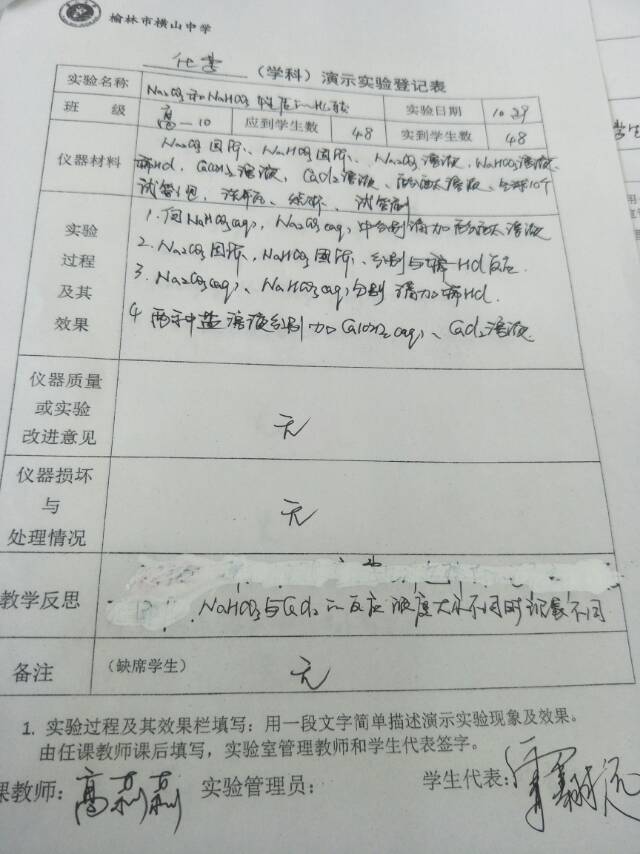 榆林市横山中学
化学 (学科) 演示实验登记表
实验名称 Na2CO3和NaHCO3性质 实验日期 10.29
班 级 高一10 应到学生数 48 实到学生数 48
仪器材料 Na2CO3固体、NaHCO3固体、Na2CO3溶液、NaHCO3溶液
稀HCl, Ca(OH)2溶液, CaCl2溶液、酚酞溶液、
试管
实验
过程
及其
效果
1. 向NaHCO3(aq), Na2CO3(aq)中分别滴加酚酞溶液
2. Na2CO3固体, NaHCO3固体、分别与稀HCl反应.
3. Na2CO3(aq)、NaHCO3(aq)分别滴加稀HCl.
4 两种盐溶液分别加Ca(OH)2(aq)、CaCl2溶液
仪器质量
或实验
改进意见
无
仪器损坏
与
处理情况
无
教学反思 NaHCO3与CaCl2的反应 浓度大小不同时现象不同
备注 (缺席学生) 无
1. 实验过程及其效果栏填写:用一段文字简单描述演示实验现象及效果。
由任课教师课后填写,实验室管理教师和学生代表签字。
课教师: 高莉莉 实验管理员: 学生代表: